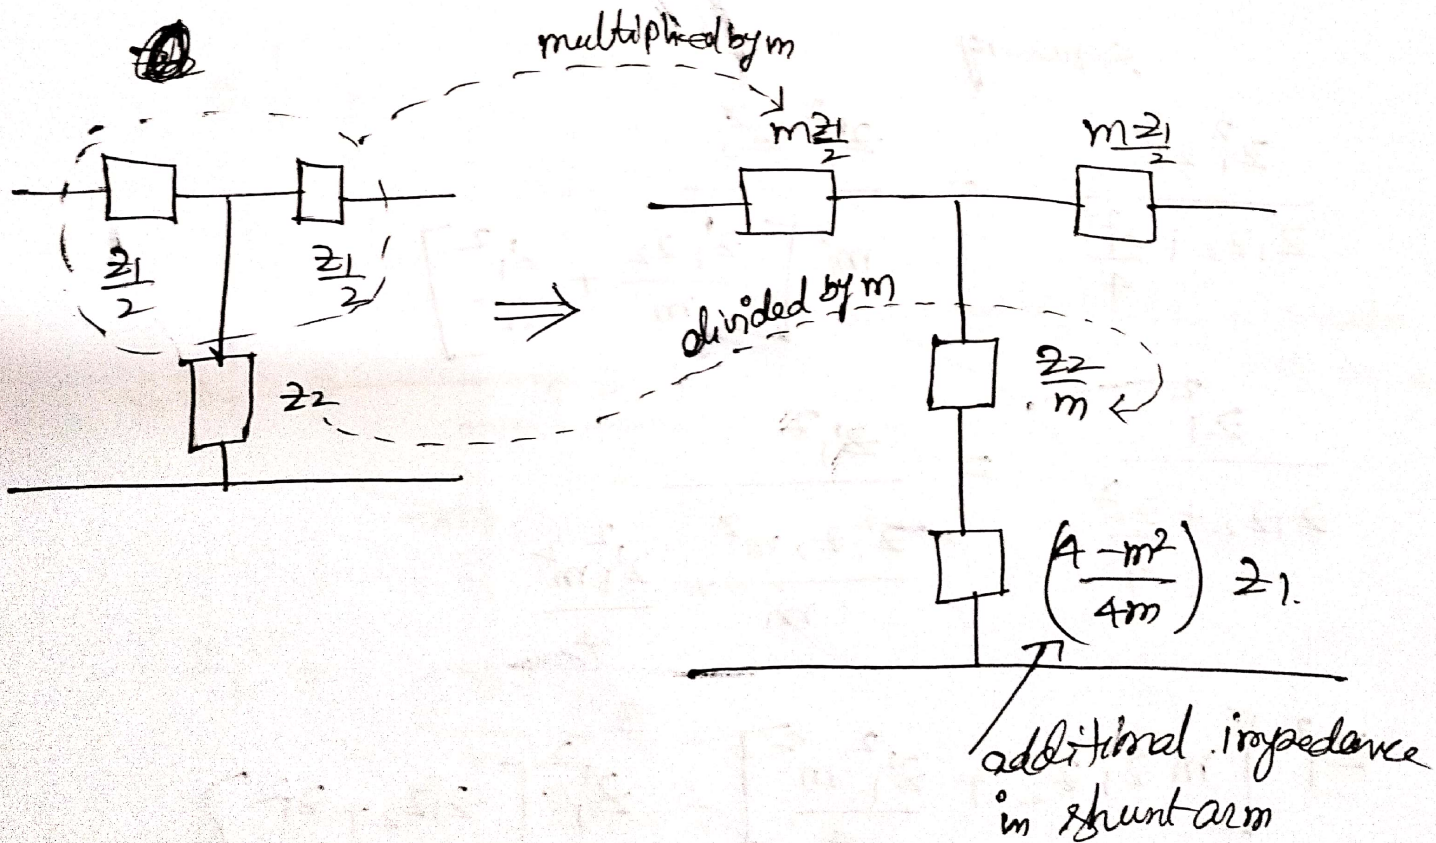 multiplied by m
mZ1/2
mZ1/2
Z1/2
Z1/2
divided by m
Z2
Z2/m
(4-m²/4m) Z1.
additional impedance
in shunt arm